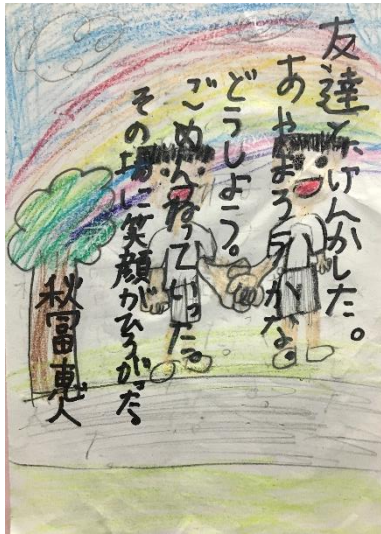 友達と、けんかした。
あやまろうかな。
どうしよう。
ごめんねっていった。
その場に笑顔がひろがった。
秋冨恵人